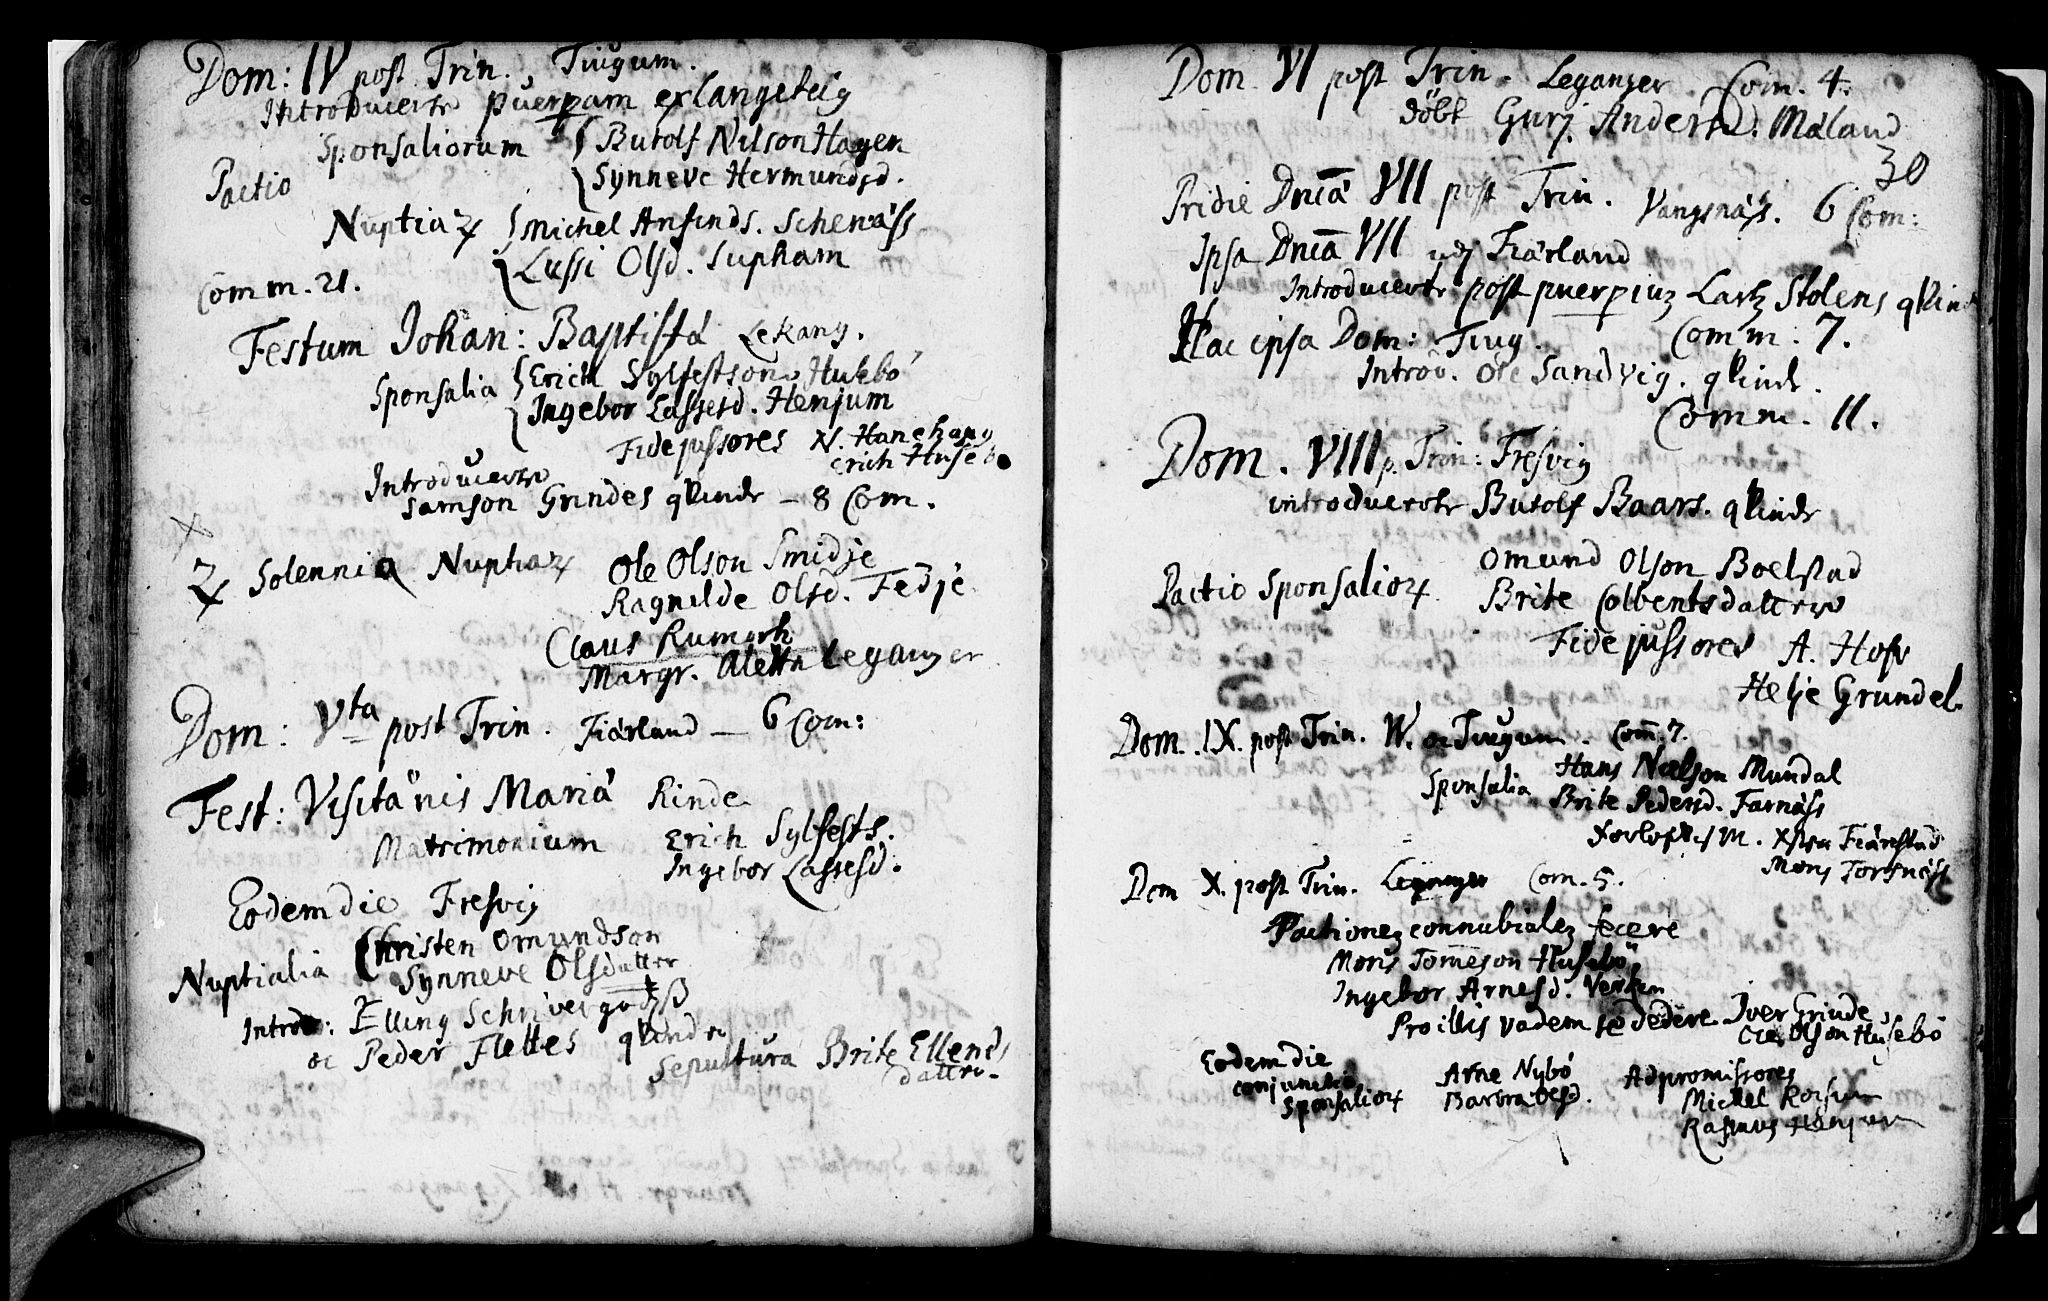 Dom: IV post Trin., Tiugum.
Introducerte puerperam ex langeteig
Sponsaliorum { Butolf Nilson Hagen
Pactio { Synneve Hermundsd.
Nuptiaꝝ { Michel Ansinds. Schenäss
{ Lussi Olsd. Supham
Comm. 21.
Festum Johan: Baptistá Lekang.
Sponsalia { Erich Sylfestson Husebó
{ Ingebor Lassesd. Henjum
Fidejussores N. Hanehaug
Erich Husebo
Introducerte
Samson Grindes qvinde – 8 Com.
2 Solennia Nuptiaꝝ Ole Olson Smidje
Ragnilde Olsd. Fedje
Claus Rumork
Margr. Aletta Leganger
Dom: Vta post Trin. Fiärland – 6 Com:
Fest: Visitäõnis Mariá Rinde
Matrimonium Erich Sylfests.
Ingebor Lassesd.
Eodem die Fresvig
Nuptialia Christen Omundson
Synneve Olsdatter
Introd: Elling Schrivergodß
oc Peder Flettes qvindr
Sepultura Brite Ellends
dattr.
Dom. VI post Trin. Leganger Com. 4.
döbt Guri Andersd. Máland
30
Pridie Dnicá VII post Trin. Vangsnäss. 6 Com:
Ipsa Dnicâ VII udj Fiärland
Introducerte post puerperiuꝫ Lartz Stolens qvinde
Hac ipsa Dom: Tiug. Comm. 7.
Introd. Ole Sandvig. qvinde.
Comm. 11.
Dom. VIII p. Trin: Fresvig
introducerte Butolf Baars. qvinde
Pactio Sponsalioꝝ Omund Olson Boelstad
Brite Colbentsdatter
Fidejussores A. Hofv
Helje Grundel.
Dom. IX. post Trin. W. oc Tiugum. Com̄. 7.
Sponsalia Hans Nielson Mundal
Brite Pedersd. Farnäss
M. Fiärestad
Mons Torsnäss
Dom X. post Trin. Leganger Com. 5.
Pactiones connubiales fecere
Mons Tomeson Husebö
Ingebor Arnesd. Verken
Pro illis vadem se dedere Iver Grinde,
Ole Olson Husebö
Eodem die
conjunctio Arne Nybó Adpromissores
Sponsalioꝝ Barbra Olesd. Michel Roisum
Rasmus Henjum